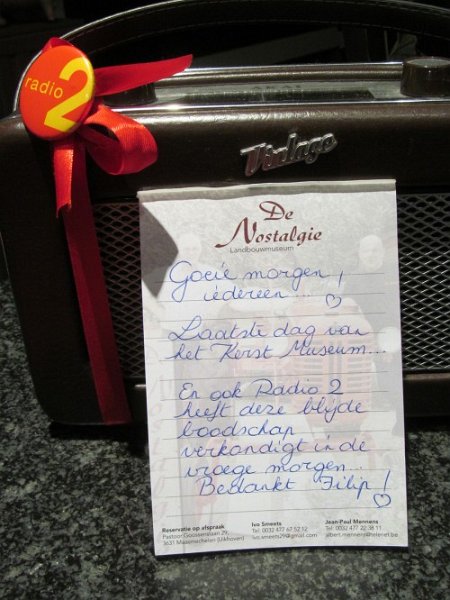 radio
2
Vintage
De
Nostalgie
Landbouwmuseum
Goeie morgen!
iedereen...
Laatste dag van
het Kerst Museum...
En ook Radio 2
heeft deze blijde
boodschap
verkondigt in de
vroege morgen...
Bedankt Filip!
Reservatie op afspraak
Pastoor Goossenslaan 29,
3631 Maasmechelen (Uikhoven)
Ivo Smeets
Tel: 0032 477 67 52 12
ivo.smeets29@gmail.com
Jean-Paul Mennens
Tel: 0032 477 22 38 11
albert.mennens@telenet.be